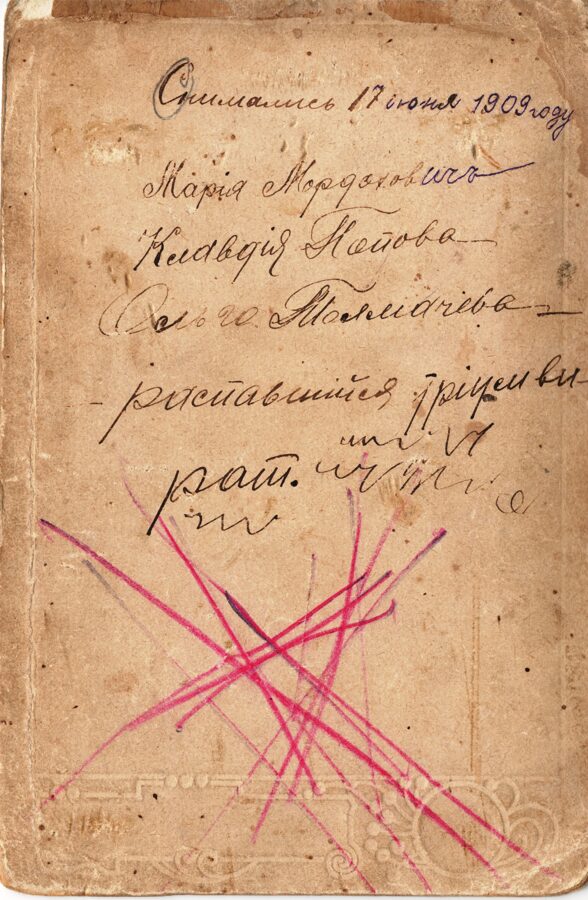 Снимались 17 июня 1909 году
Марія Мордоховичъ
Клавдія Попова
Ольга Толмачева
- распавшийся тріумви-
рат.